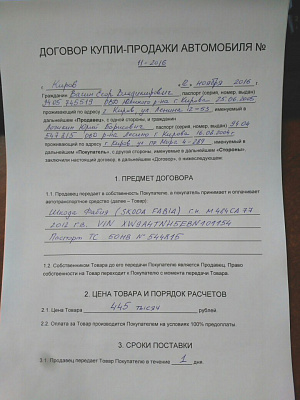 ДОГОВОР КУПЛИ-ПРОДАЖИ АВТОМОБИЛЯ №
11-2016
г. Киров 12 ноября 2016 г.
Гражданин Вагин Егор Владимирович, паспорт (серия, номер, выдан)
34 05 745519 ОВД Ленинского р-на г. Кирова 25.06.2005,
проживающий по адресу г. Киров, ул. Ленина 12-53, именуемый в
дальнейшем «Продавец», с одной стороны, и гражданин
Юрий Борисович, паспорт (серия, номер, выдан) 33 04
547815 ОВД р-на г. Кирова 16.08.2004г.
проживающий по адресу г. Киров, ул. 4-289, именуемый в
дальнейшем «Покупатель», с другой стороны, именуемые в дальнейшем «Стороны»,
заключили настоящий договор, в дальнейшем «Договор», о нижеследующем:
1. ПРЕДМЕТ ДОГОВОРА
1.1. Продавец передает в собственность Покупателя, а покупатель принимает и оплачивает
автотранспортное средство (далее – Товар)
Шкода Фабия (SKODA FABIA) г.н. М484СА 77
2012 г.в. VIN XW8A4TNH5EBN101154
Паспорт ТС 60НВ № 544815
1.2. Собственником Товара до его передачи Покупателю является Продавец. Право
собственности на Товар переходит к Покупателю с момента передачи Товара.
2. ЦЕНА ТОВАРА И ПОРЯДОК РАСЧЕТОВ
2.1. Цена Товара 445 тысяч рублей.
2.2. Оплата за Товар производится Покупателем на условиях 100% предоплаты
3. СРОКИ ПОСТАВКИ
3.1. Продавец передает Товар Покупателю в течение 1 дня.